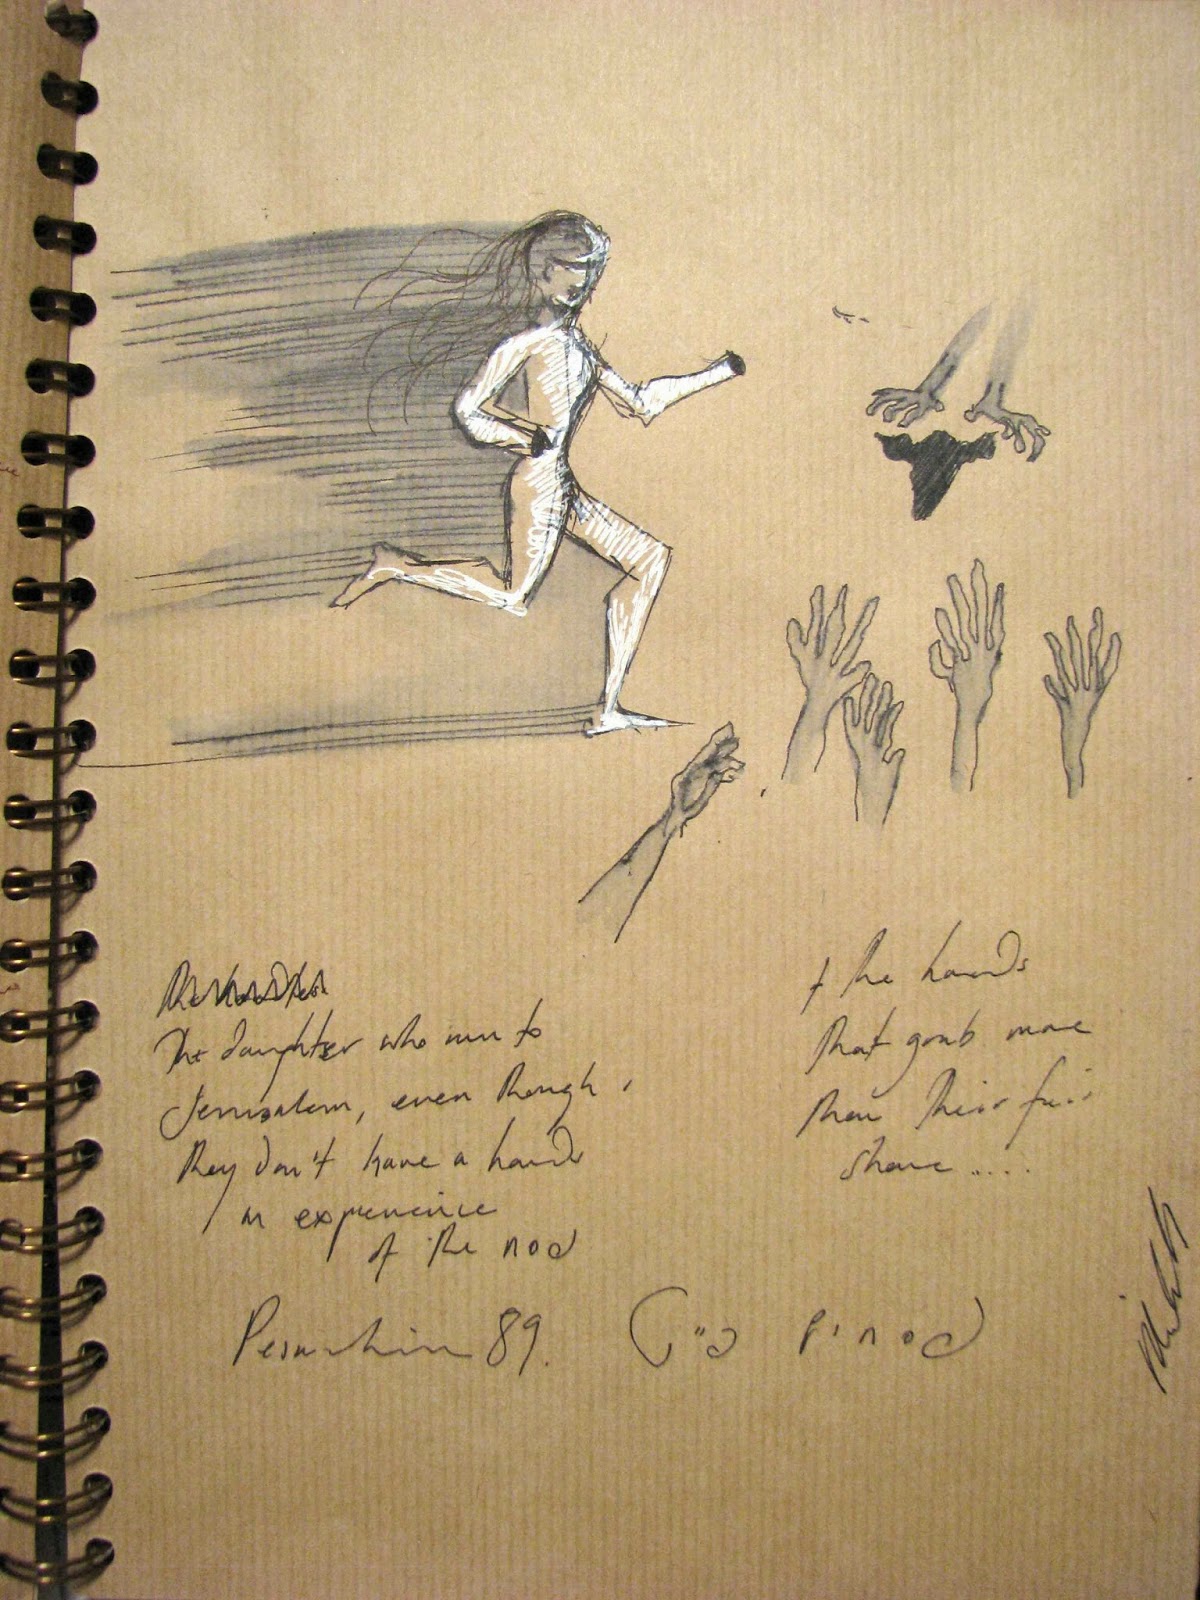 The daughter who run to
Jerusalem, even though
they don't have a hands
on experience
of the פסח
& the hands
that grab more
than their fair
share .....
Pesachim 89. פסחים פ"ט